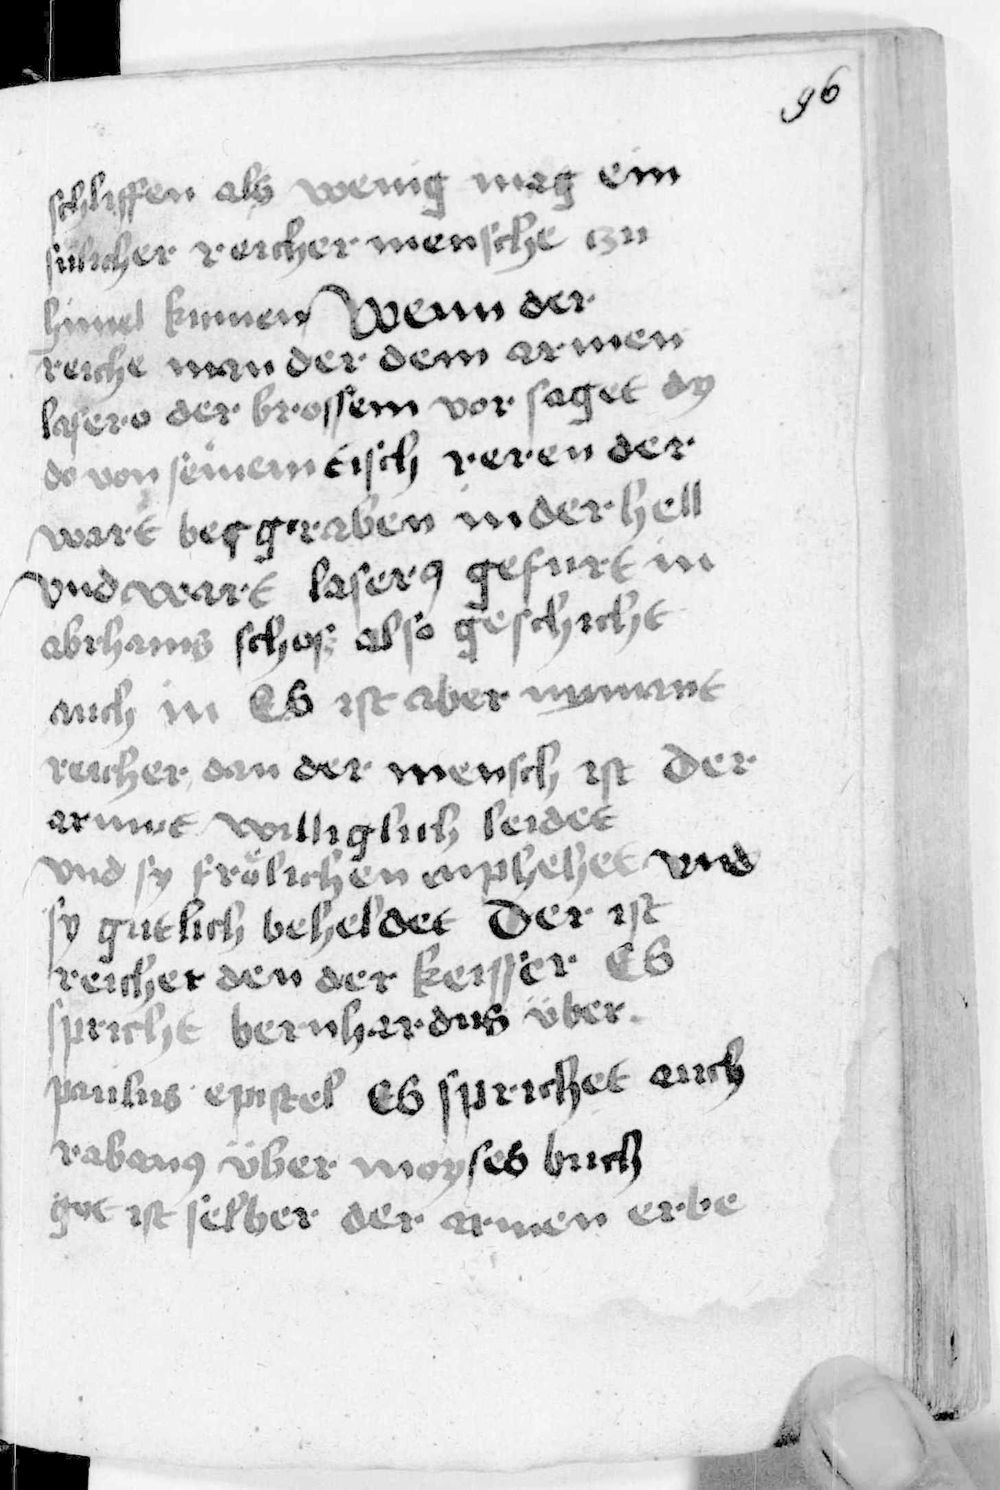 96
schliffen als wenig mag ein
sülicher reicher mensche zu
himel kumen Wenn der
reiche man der dem armen
lasero der brossem vor saget dy
do von seinem tisch reren der
wart begraben in der hell
vnd wart laserꝰ gefurt in
abrhams schos also geschicht
auch in Es ist aber nymant
reicher dan der mensch ist Der
armut williglich leidet
vnd sy frölichen enphehet vnd
sy gutlich beheldet Der ist
reicher den der keisser Es
spricht bernhardus über
paulus epistel Es sprichet auch
rabanꝰ über moyses buch
got ist selber der armen erbe